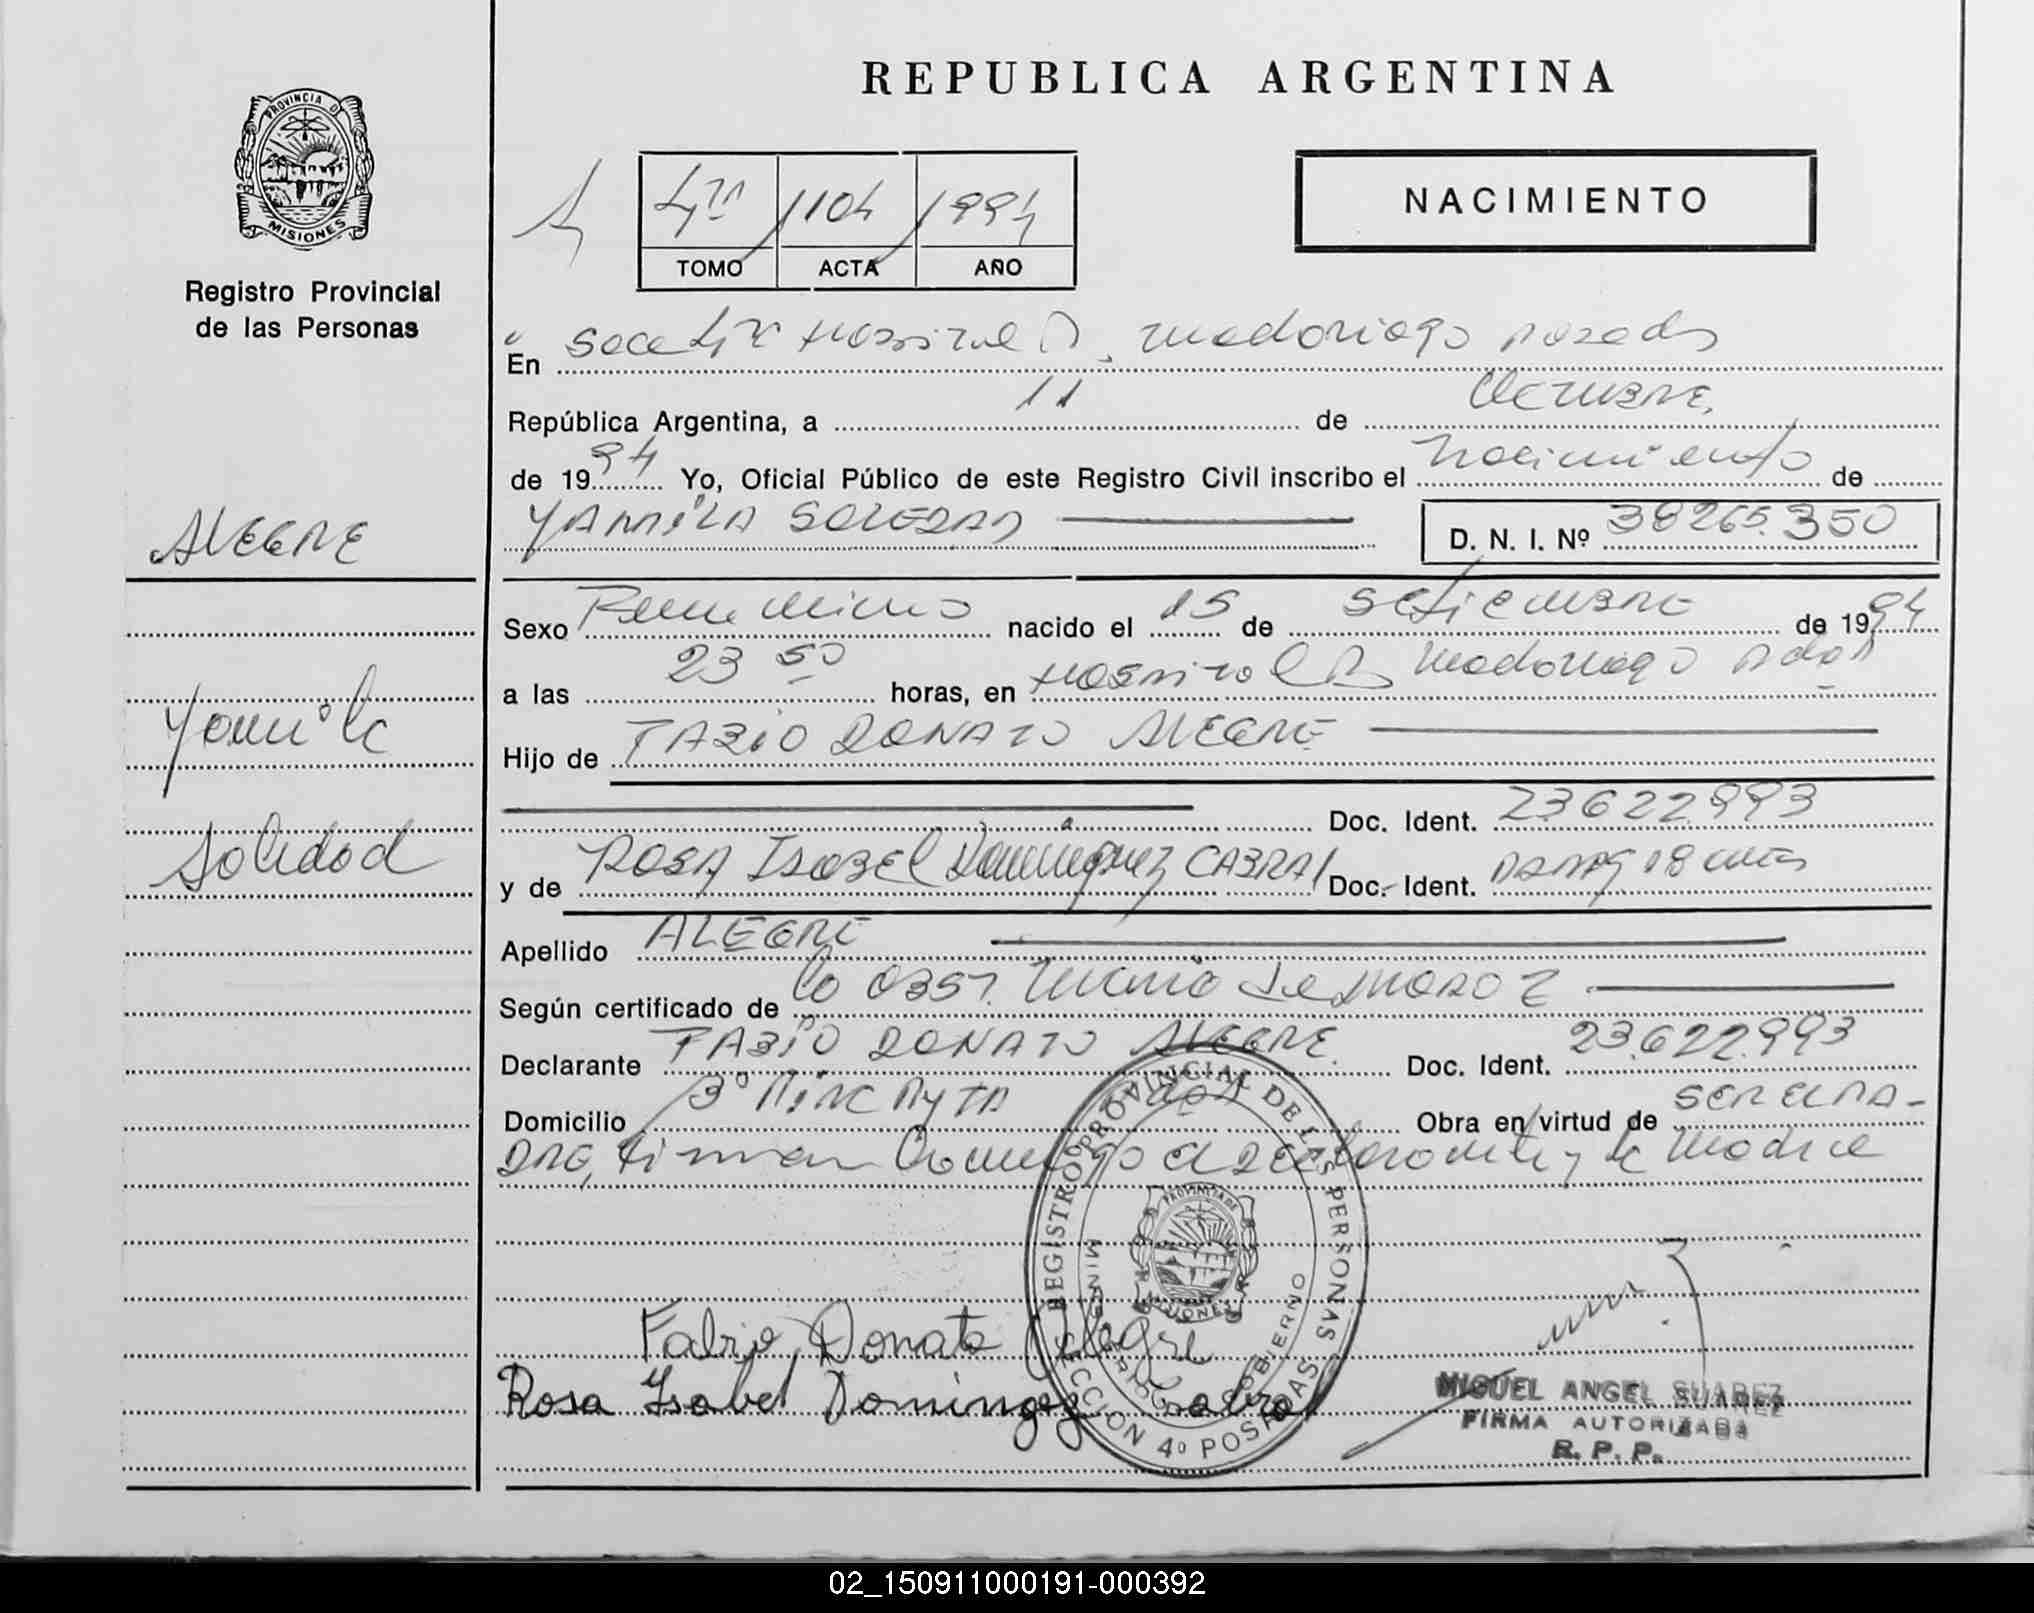 REPUBLICA ARGENTINA
PROVINCIA DE
MISIONES
Registro Provincial
de las Personas
4
4to 1104 1994
TOMO ACTA AÑO
NACIMIENTO
En Secc 4ta Hospital R. Madariaga Posadas
República Argentina, a 11 de Octubre.
de 1994 Yo, Oficial Público de este Registro Civil inscribo el Nacimiento de
YAMILA SOLEDAD
D. N. I. Nº 38265.350
ALEGRE
Yamila
Soledad
Sexo Femenino nacido el 15 de Setiembre de 1994
a las 23 50 horas, en Hospital R Madariaga
Hijo de FABIO DONATO ALEGRE
Doc. Ident. 23.622.993
y de ROSA ISABEL Dominguez CABRAL Doc. Ident. 18
Apellido ALEGRE
Según certificado de la OBST. Maria
Declarante FABIO DONATO ALEGRE. Doc. Ident. 23.622.993
Domicilio Obra en virtud de
Firman y la Madre
REGISTRO PROVINCIAL DE LAS PERSONAS
MINISTERIO DE GOBIERNO
PROVINCIA DE
MISIONES
SECCION 4º POSADAS
Fabio Donato Alegre
Rosa Isabel Dominguez Cabral
MIGUEL ANGEL SUAREZ
FIRMA AUTORIZADA
R. P. P.
02_150911000191-000392